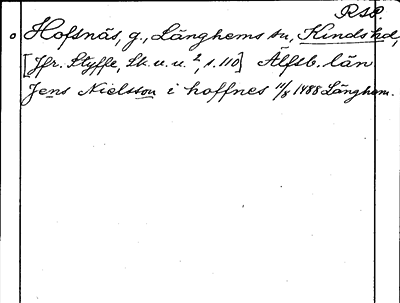 RSP.
Hofsnäs, g., Länghems sn, Kinds hd,
[Jfr. Styffe, Sk. u. u.², s. 110] Älfsb. län
Jens Nielsson i hoffnes 11/8 1488 Länghem.